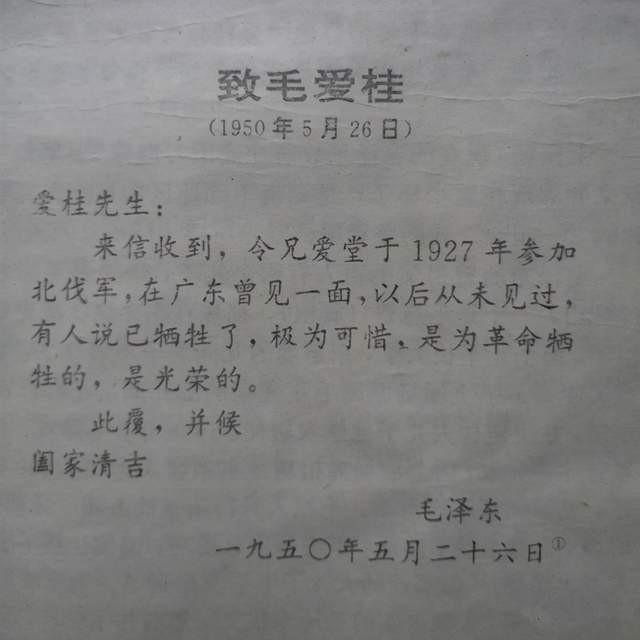 致毛爱桂
（1950年5月26日）
爱桂先生：
来信收到，令兄爱堂于1927年参加
北伐军，在广东曾见一面，以后从未见过，
有人说已牺牲了，极为可惜，是为革命牺
牲的，是光荣的。
此覆，并候
阖家清吉
毛泽东
一九五〇年五月二十六日①